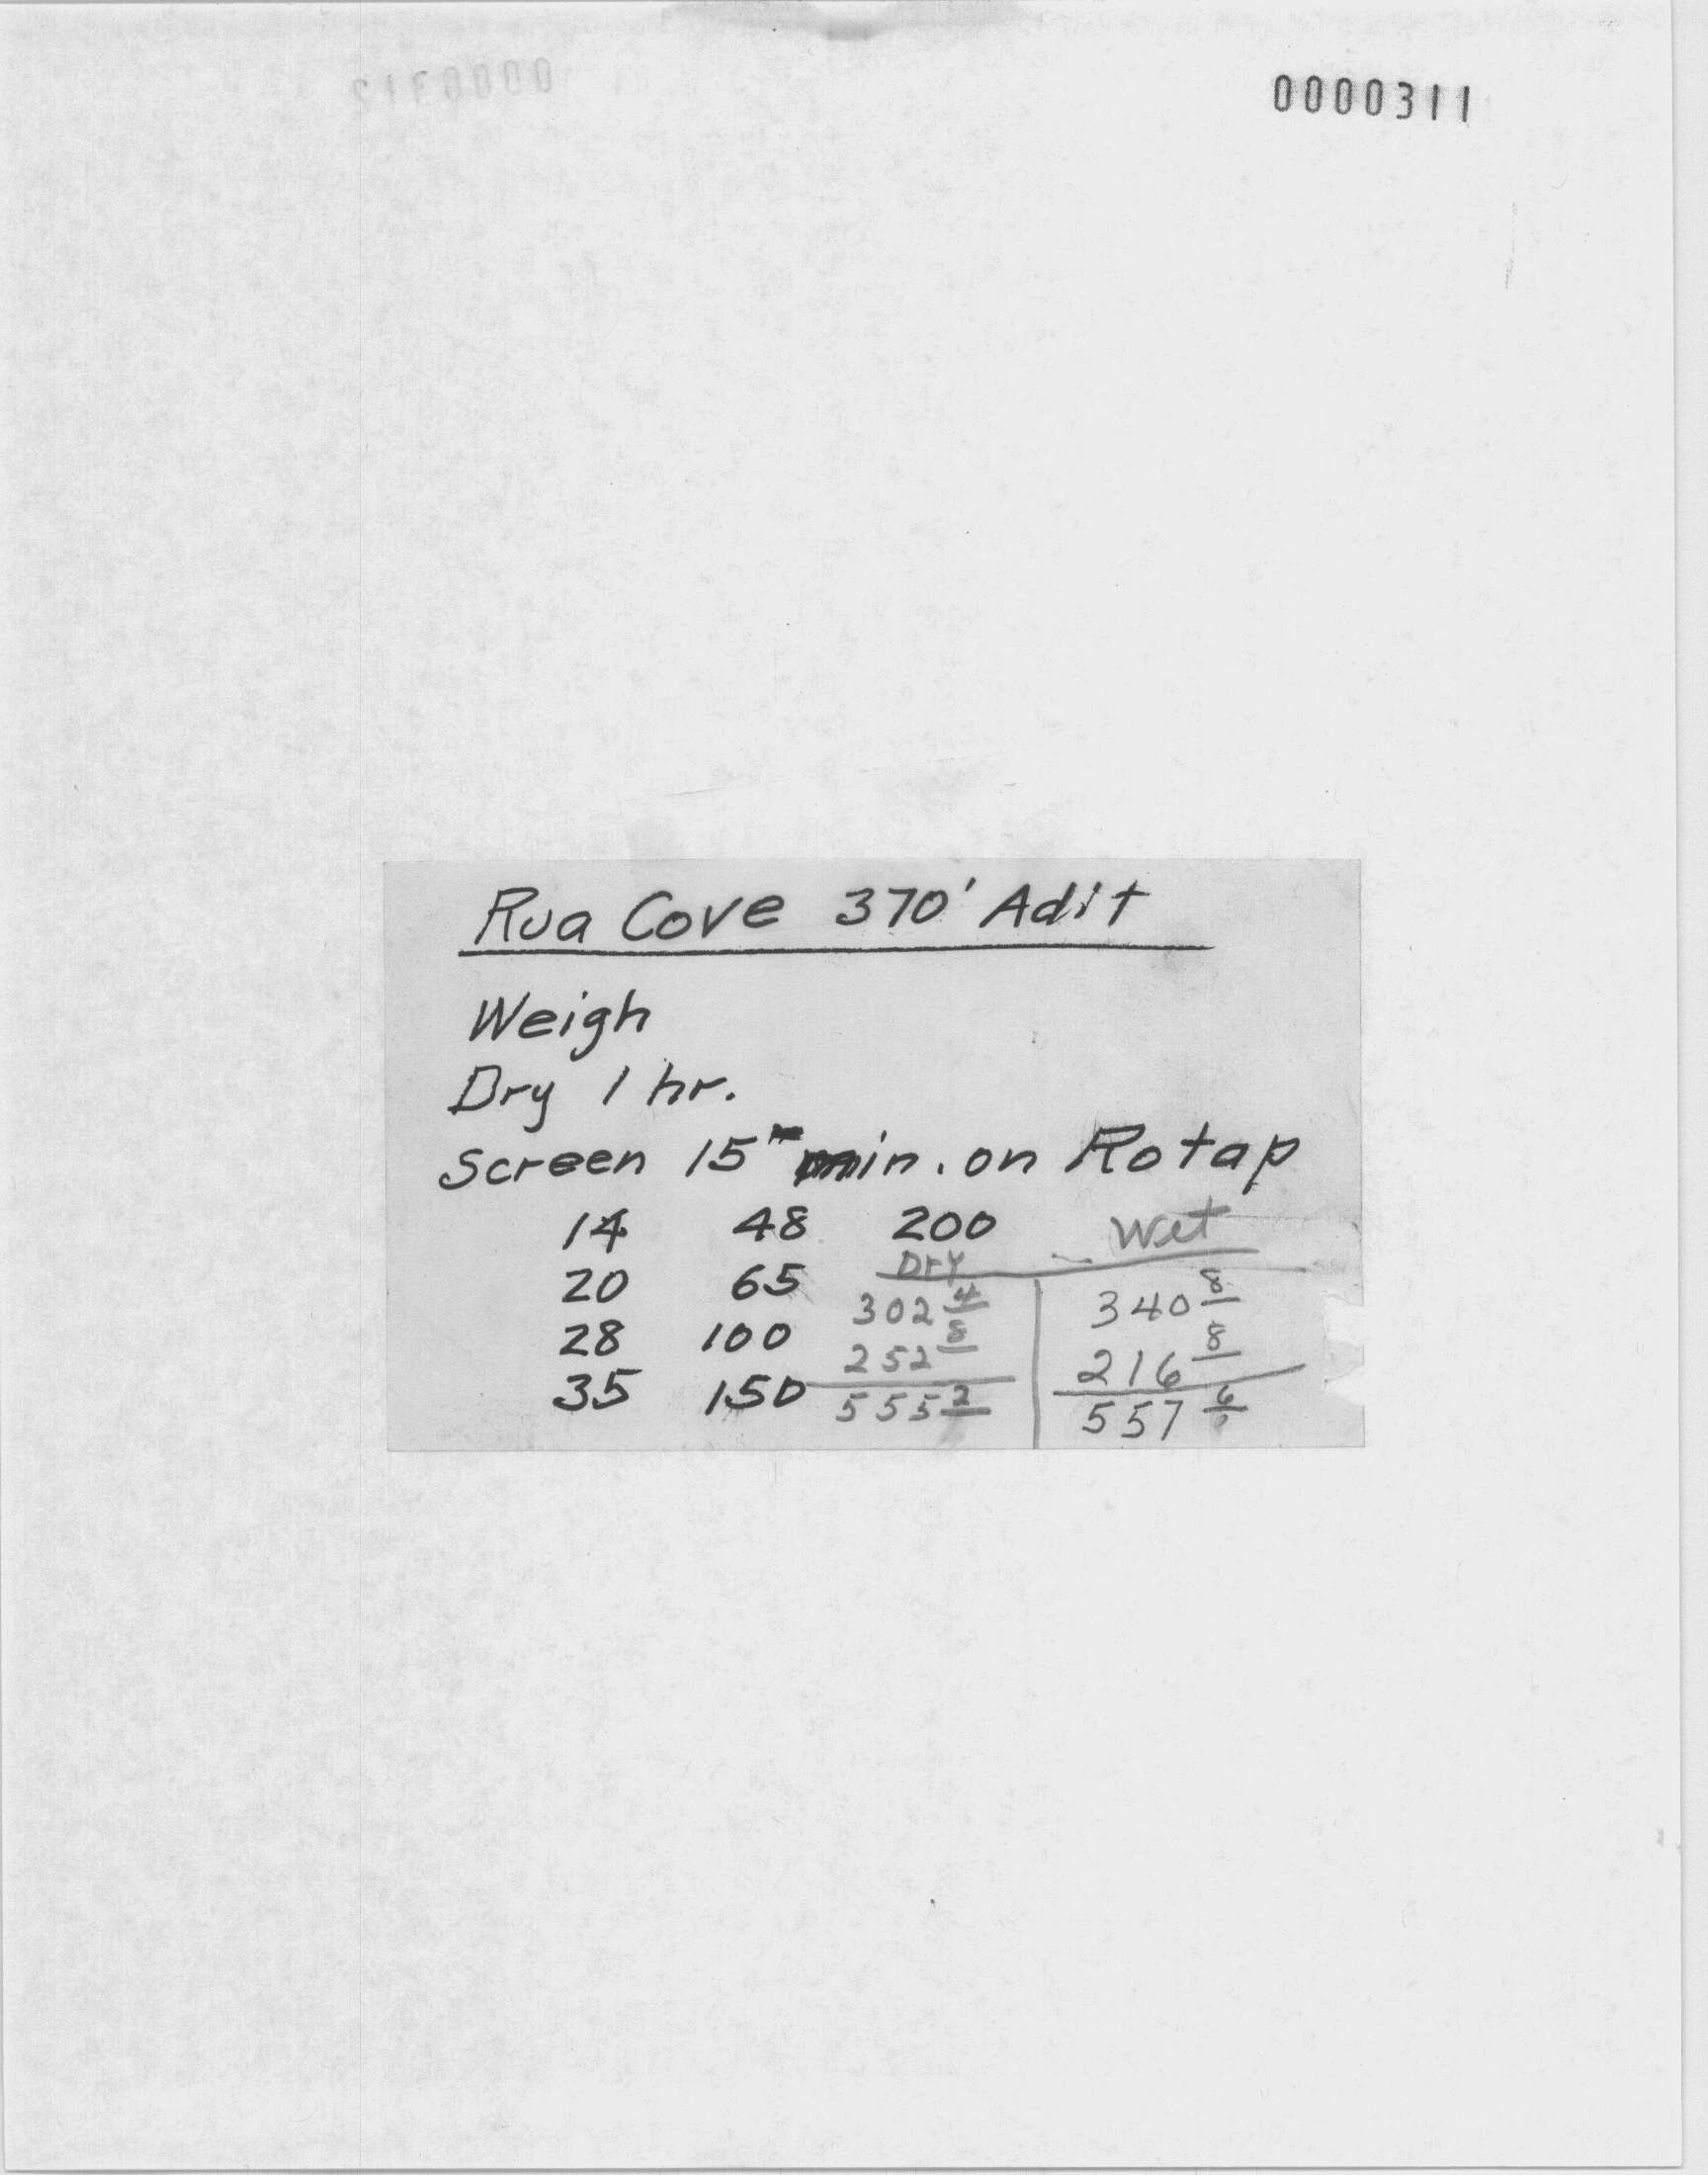 0000311
Rua Cove 370' Adit
Weigh
Dry 1 hr.
Screen 15 min. on Rotap
14 48 200 Wet
Dry
20 65 302 4 340 8
28 100 252 8 216 8
35 150 555 2 557 6